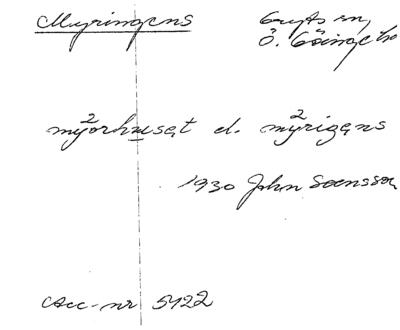 Myringens
Gryts sn,
Ö. Göinge hd
2 2
myorhusat el. myrigans
1930 John Svensson
Acc-nr 5422